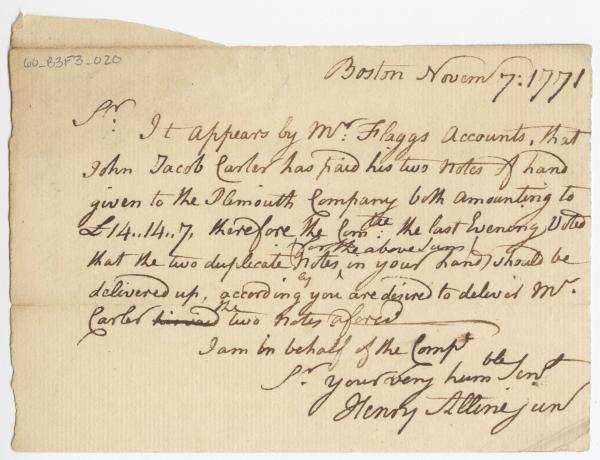 60_B3F3_020
Boston Novemr 7: 1771
Sr. It appears by Mr. Flaggs Accounts, that
John Jacob Carler has paid his two Notes of hand
given to the Plimouth Company both amounting to
£14..14..7, therefore the Comtee: the last Evening Voted
(for the above sum)
that the two duplicate Notes ^ in your hand should be
delivered up, accordingly you are desired to deliver Mr.
Carler his said the two Notes aforesd
I am in behalf of the Compy
Sr. your very humble Servt
Henry Alline junr